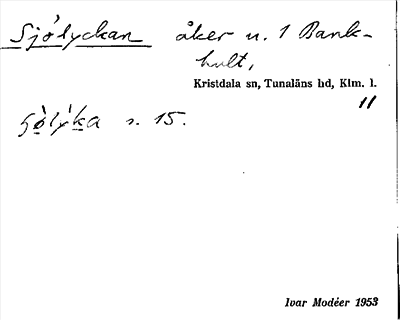 Sjölyckan åker u. 1 Bank-
hult,
Kristdala sn, Tunaläns hd, Klm. l.
11
s. 15.
Ivar Modéer 1953